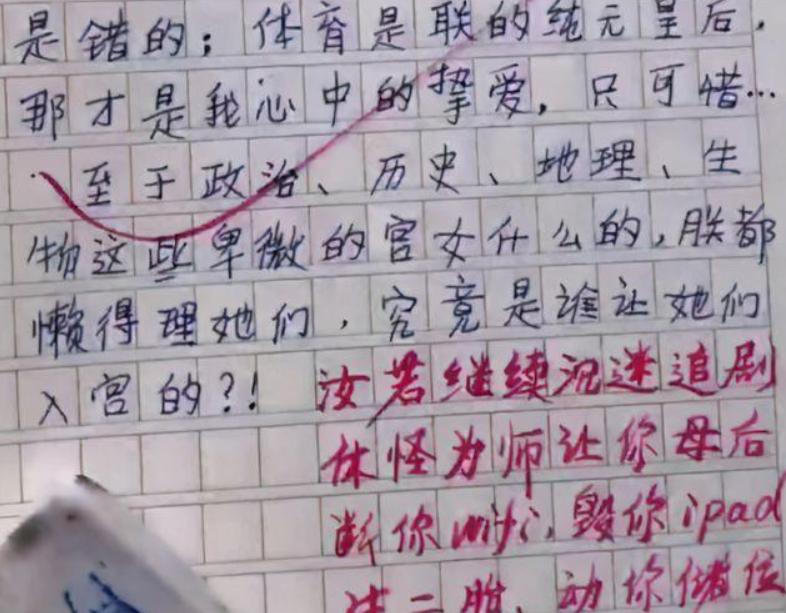 是错的；体育是联的纯元皇后，
那才是我心中的挚爱，只可惜…
至于政治、历史、地理、生
物这些卑微的宫女什么的，朕都
懒得理她们，究竟是谁让她们
入宫的？！汝若继续沉迷追剧
休怪为师让你母后
断你wifi，毁你ipad
生二胎，动你储位